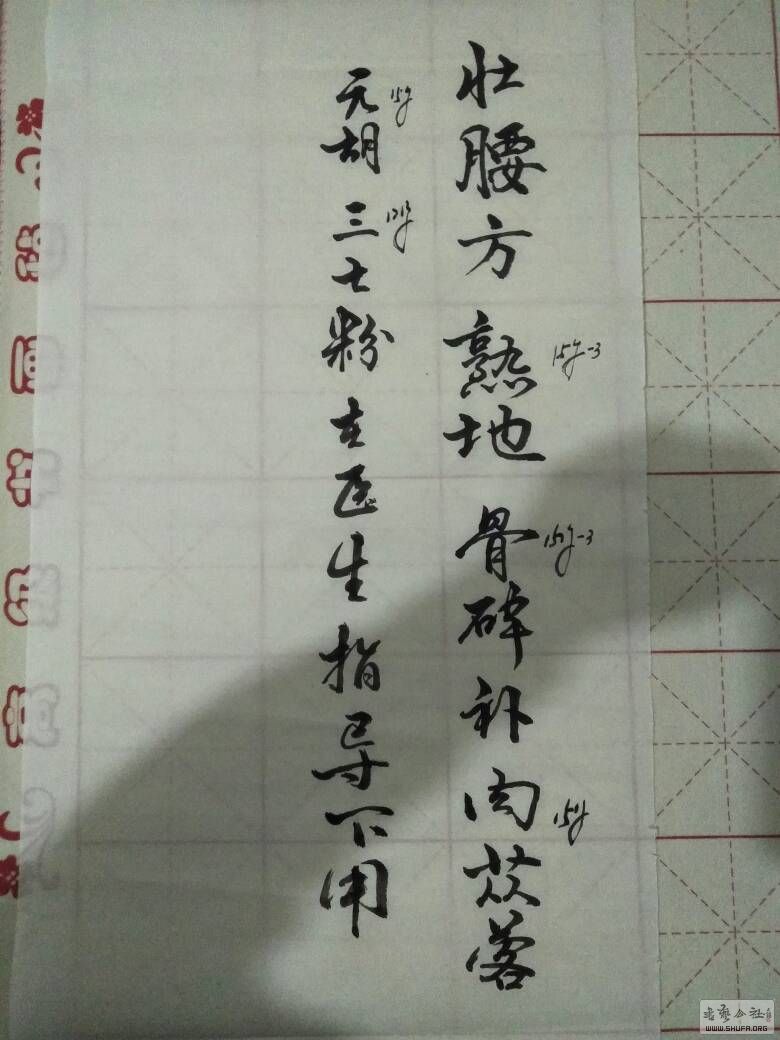 壮腰方 熟地 骨碎补 肉苁蓉
15g-3
15g-3
15g
元胡 三七粉 在医生指导下用
15g
书艺公社
WWW.SHUFA.ORG